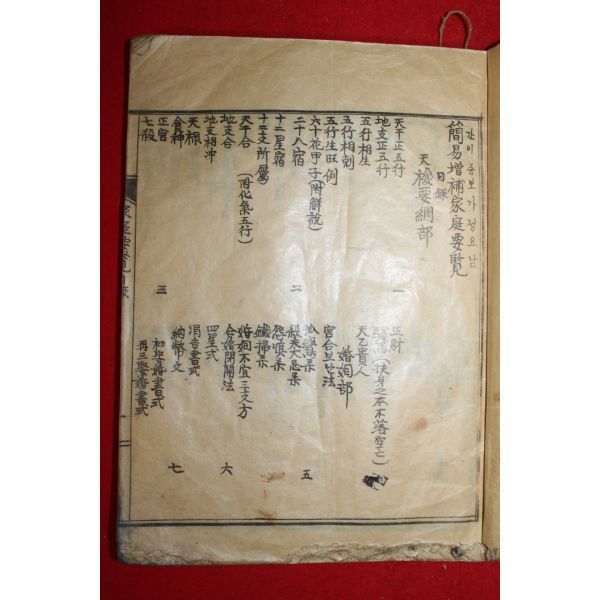 간이증보가정요람
簡易增補家庭要覽
目錄
天機要綱部
天干正五行 一
地支正五行
五行相生
五行相剋
五行生旺例
六十花甲子(附解說)
二十八宿 二
十二星宿
十二支所屬
天干合(附化氣五行)
地支合
地支相冲
天祿
食神
正官 三
七殺
正財
天乙貴人
婚姻部
宮合보는法
五
婚姻不宜三支方
合婚開閉法 六
四星式
涓吉書式
納幣文 七
初娶婚書式
再三娶婚書式